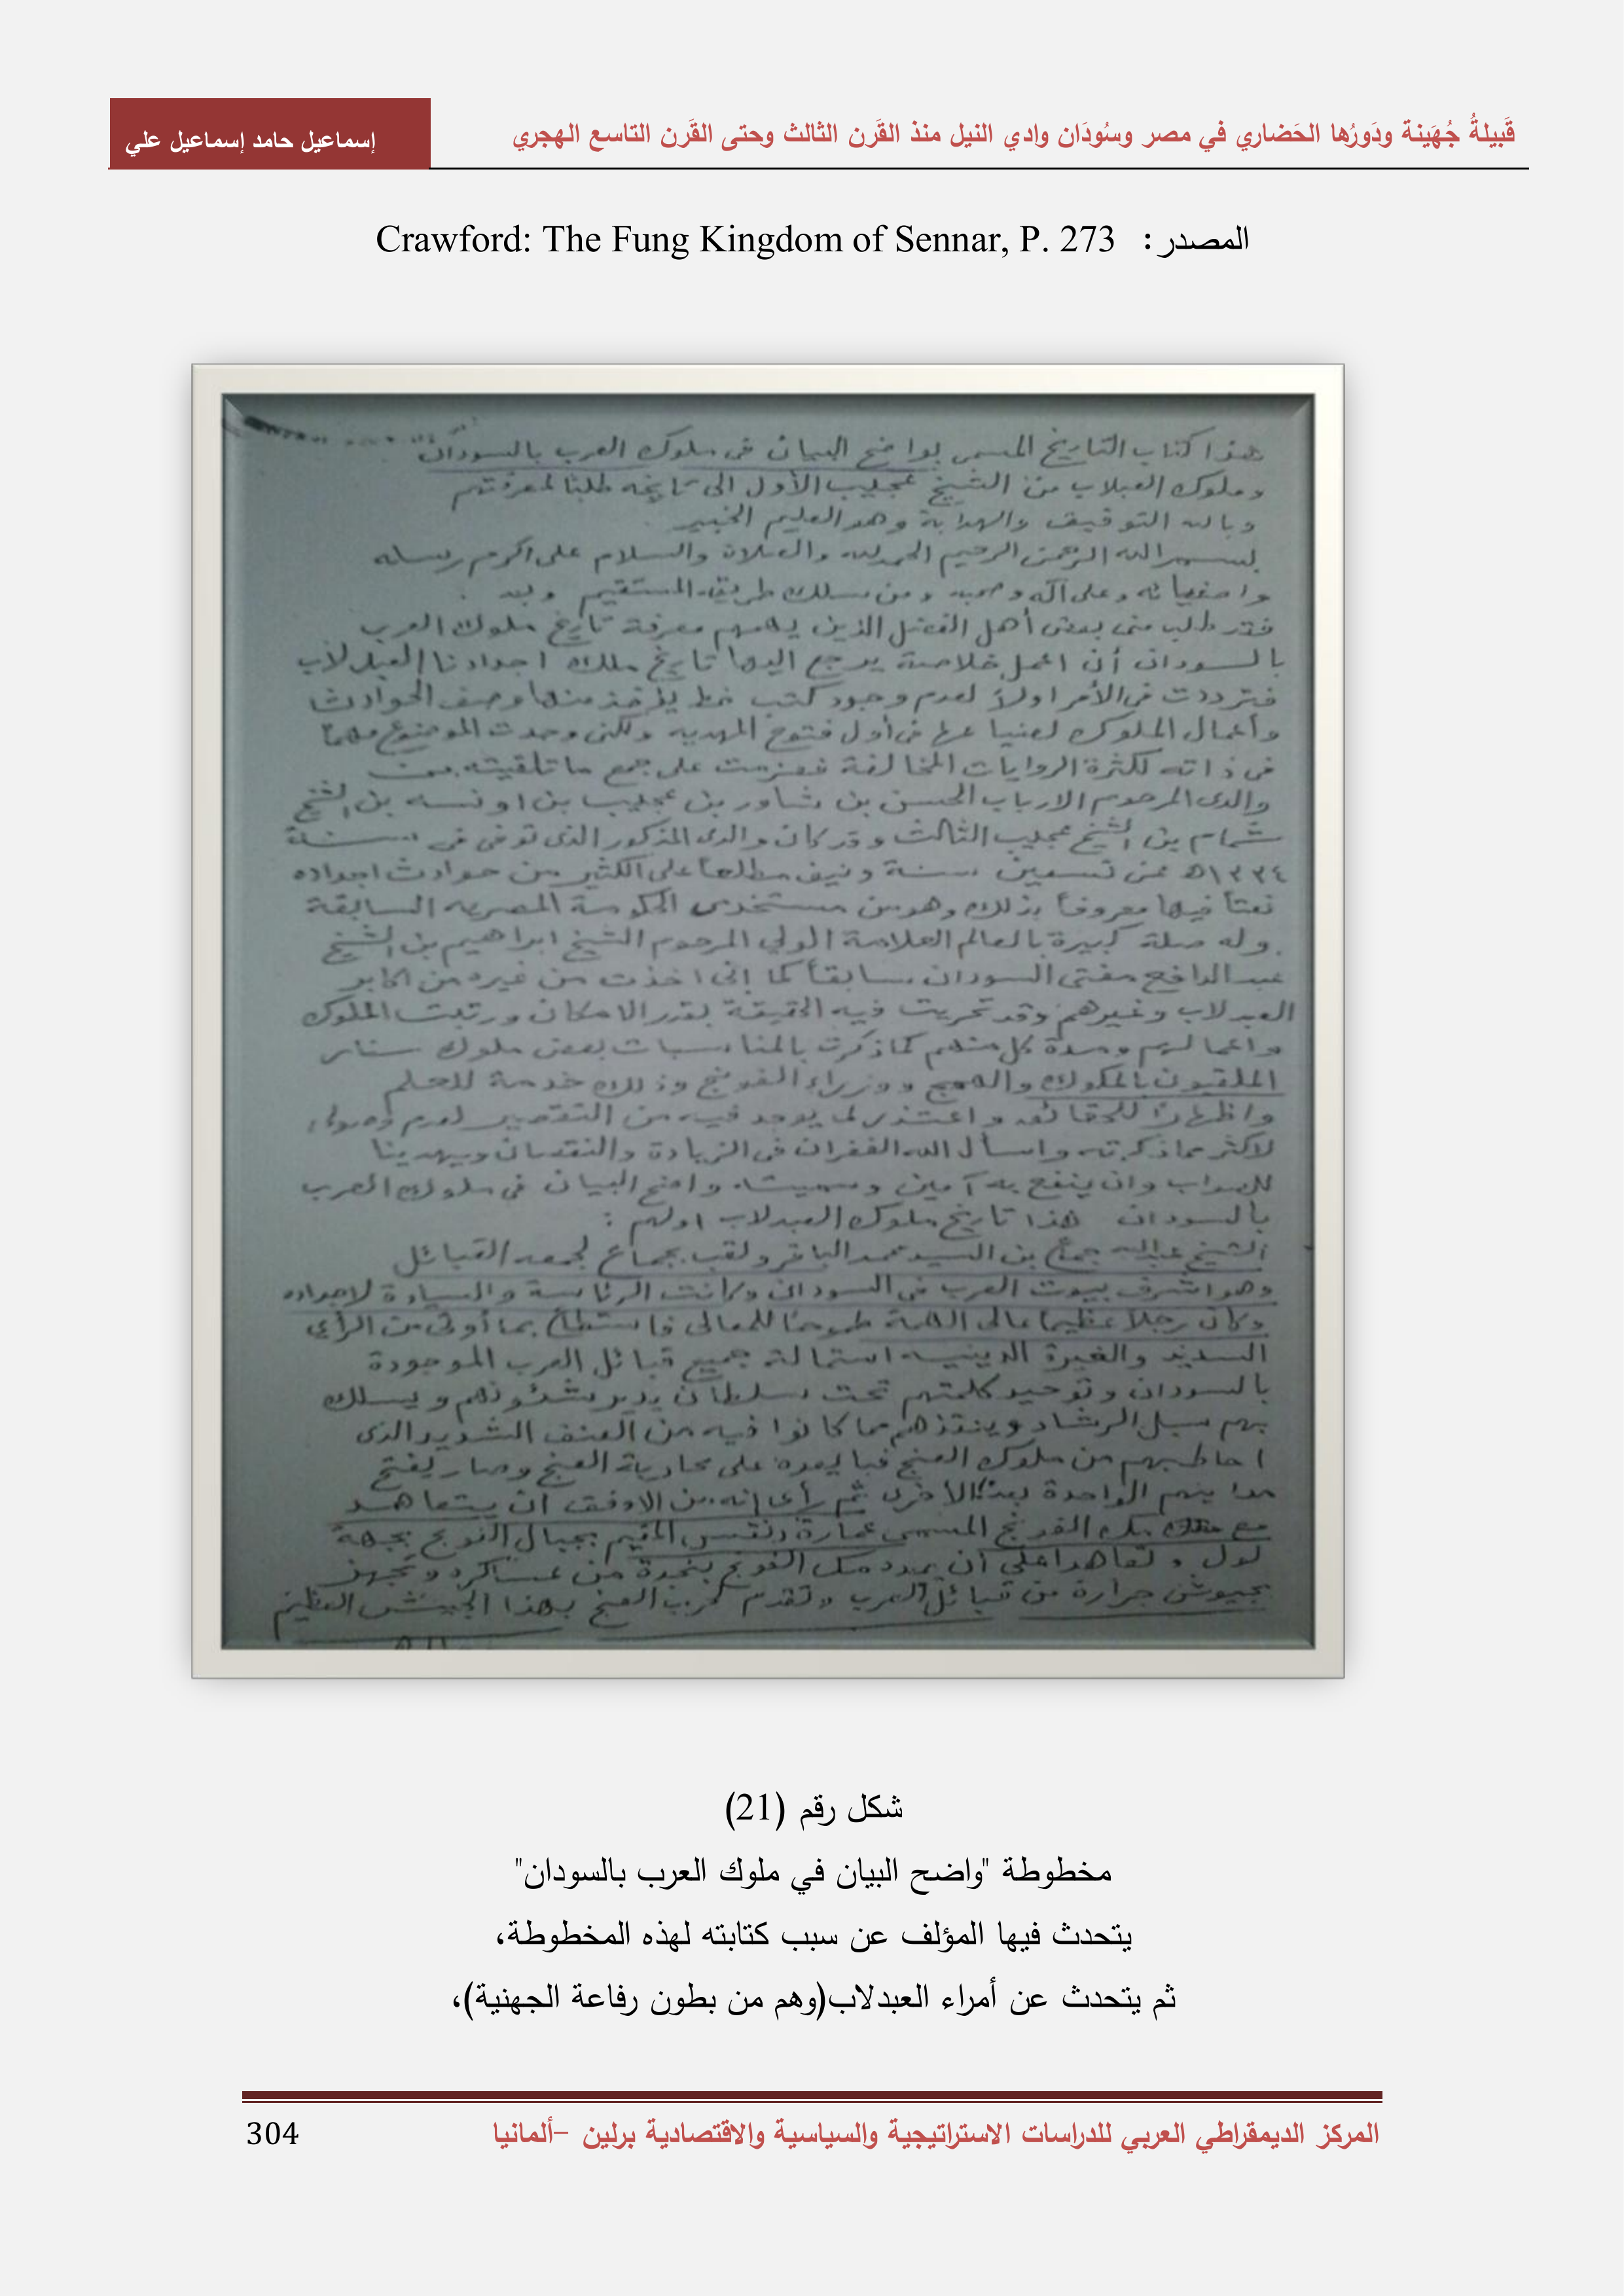 قَبيلةُ جُهَينة ودَورُها الحَضاري في مصر وسُودَان وادي النيل منذ القَرن الثالث وحتى القَرن التاسع الهجري
إسماعيل حامد إسماعيل علي
المصدر: Crawford: The Fung Kingdom of Sennar, P. 273
هذا كتاب التاريخ المسمى بواضح البيان فى ملوك العرب بالسودان
وملوك العبدلاب من الشيخ عجيب الأول الى تاريخه طلبنا لمعرفتهم
وبالله التوفيق والهداية وهو العليم الخبير
بسم الله الرحمن الرحيم الحمد لله والصلاة والسلام على اكرم رسله
واصفيائه وعلى آله وصحبه ومن سلك طريقه المستقيم وبعد
فقد طلب منى بعض أهل الفضل الذين يهمهم معرفة تاريخ ملوك العرب
بالسودان أن اعمل خلاصة يرجع اليها تاريخ ملك اجدادنا العبدلاب
فترددت فى الأمر اولاً لعدم وجود كتب خط يؤخذ منها وصف الحوادث
وأعمال الملوك لضياعها فى أول فتوح المهديه ولكنى وجدت الموضوع مهماً
فى ذاته لكثرة الروايات المخالفة فعزمت على جمع ما تلقيته من
والدى المرحوم الارباب الحسن بن شاور بن عجيب بن اونسه بن الشيخ
شمام بن الشيخ عجيب الثالث وقد كان والدى المذكور الذى توفى فى سنة
١٣٣٤ه عن تسعين سنة ونيف مطلعاً على الكثير من حوادث اجداده
ثقتاً فيها معروفاً بذلك وهو من مستخدمى الحكومة المصريه السابقة
وله صلة كبيرة بالعالم العلامة الولي المرحوم الشيخ ابراهيم بن الشيخ
عبد الدافع مفتى السودان سابقاً كما إنى اخذت من غيره من اكابر
العبدلاب وغيرهم وقد تحريت فيه الحقيقة بقدر الامكان ورتبت الملوك
واعمالهم ومدة كل منهم كما ذكرت بالمناسبات بعض ملوك سنار
الملقبون بالمكوك والهمج ووزراء الفونج وذلك خدمة للعلم
واظهاراً للحقائق واعتذر لما يوجد فيه من التقصير لعدم وصولى
لاكثر مما ذكرته واسأل الله الغفران فى الزيادة والنقصان ويهدينا
للصواب وان ينفع به آمين وسميته واضح البيان فى ملوك العرب
بالسودان هذا تاريخ ملوك العبدلاب اولهم :
الشيخ عبدالله جماع بن السيد محمد الباقر ولقب بجماع لجمعه القبائل
وهو اشرف بيوت العرب فى السودان وكانت الرئاسة والسيادة لاجداده
وكان رجلاً عظيماً عالى الهمة طموحاً للمعالى فاستطاع بما أوتى من الرأي
السديد والغيرة الدينيه استمالة جميع قبائل العرب الموجودة
بالسودان وتوحيد كلمتهم تحت سلطان يدير شئونهم ويسلك
بهم سبل الرشاد وينقذهم مما كانوا فيه من العنف الشديد الذى
احاط بهم من ملوك العنج فبايعوه على محاربة العنج وصار يفتح
مداينهم الواحدة بعد الاخرى ثم رأى إنه من الاوفق ان يتعاهد
مع ملك الفونج المسمى عمارة دنقس المقيم بجبال الفونج بجهة
لول وتعاهدا على أن يمدد مك الفونج بنجدة من عساكره وتجهز
بجيوش جرارة من قبائل العرب وتقدم لحرب العنج بهذا الجيش العظيم
شكل رقم (21)
مخطوطة "واضح البيان في ملوك العرب بالسودان"
يتحدث فيها المؤلف عن سبب كتابته لهذه المخطوطة،
ثم يتحدث عن أمراء العبدلاب(وهم من بطون رفاعة الجهنية)،
المركز الديمقراطي العربي للدراسات الاستراتيجية والسياسية والاقتصادية برلين –ألمانيا
304